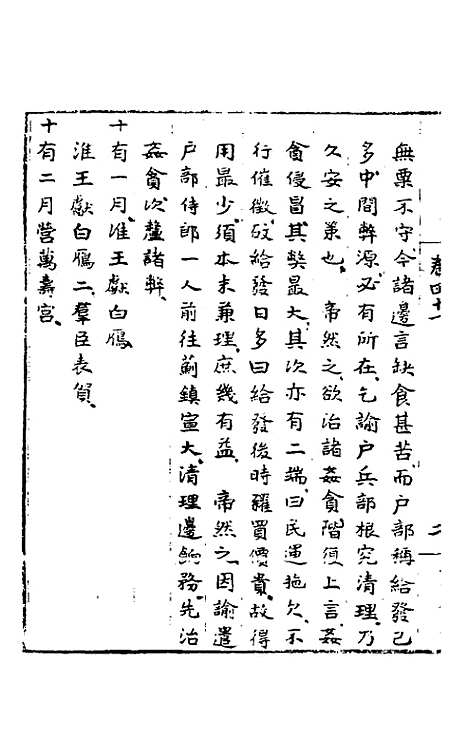 卷四十一
二
無粟不守今諸邊言缺食甚苦而户部稱給發已
多中間弊源必有所在乞諭户兵部根究清理乃
久安之策也 帝然之欲治諸姦貪階復上言姦
貪侵冒其弊最大其次亦有二端曰民運拖欠不
行催徵故給發日多曰給發後時糴買價貴故得
用最少須本末兼理庶幾有益 帝然之因諭遣
户部侍郎一人前往薊鎮宣大清理邊餉務先治
姦貪次釐諸弊
十有一月淮王獻白鴈
淮王獻白鴈二羣臣表賀
十有二月營萬壽宮